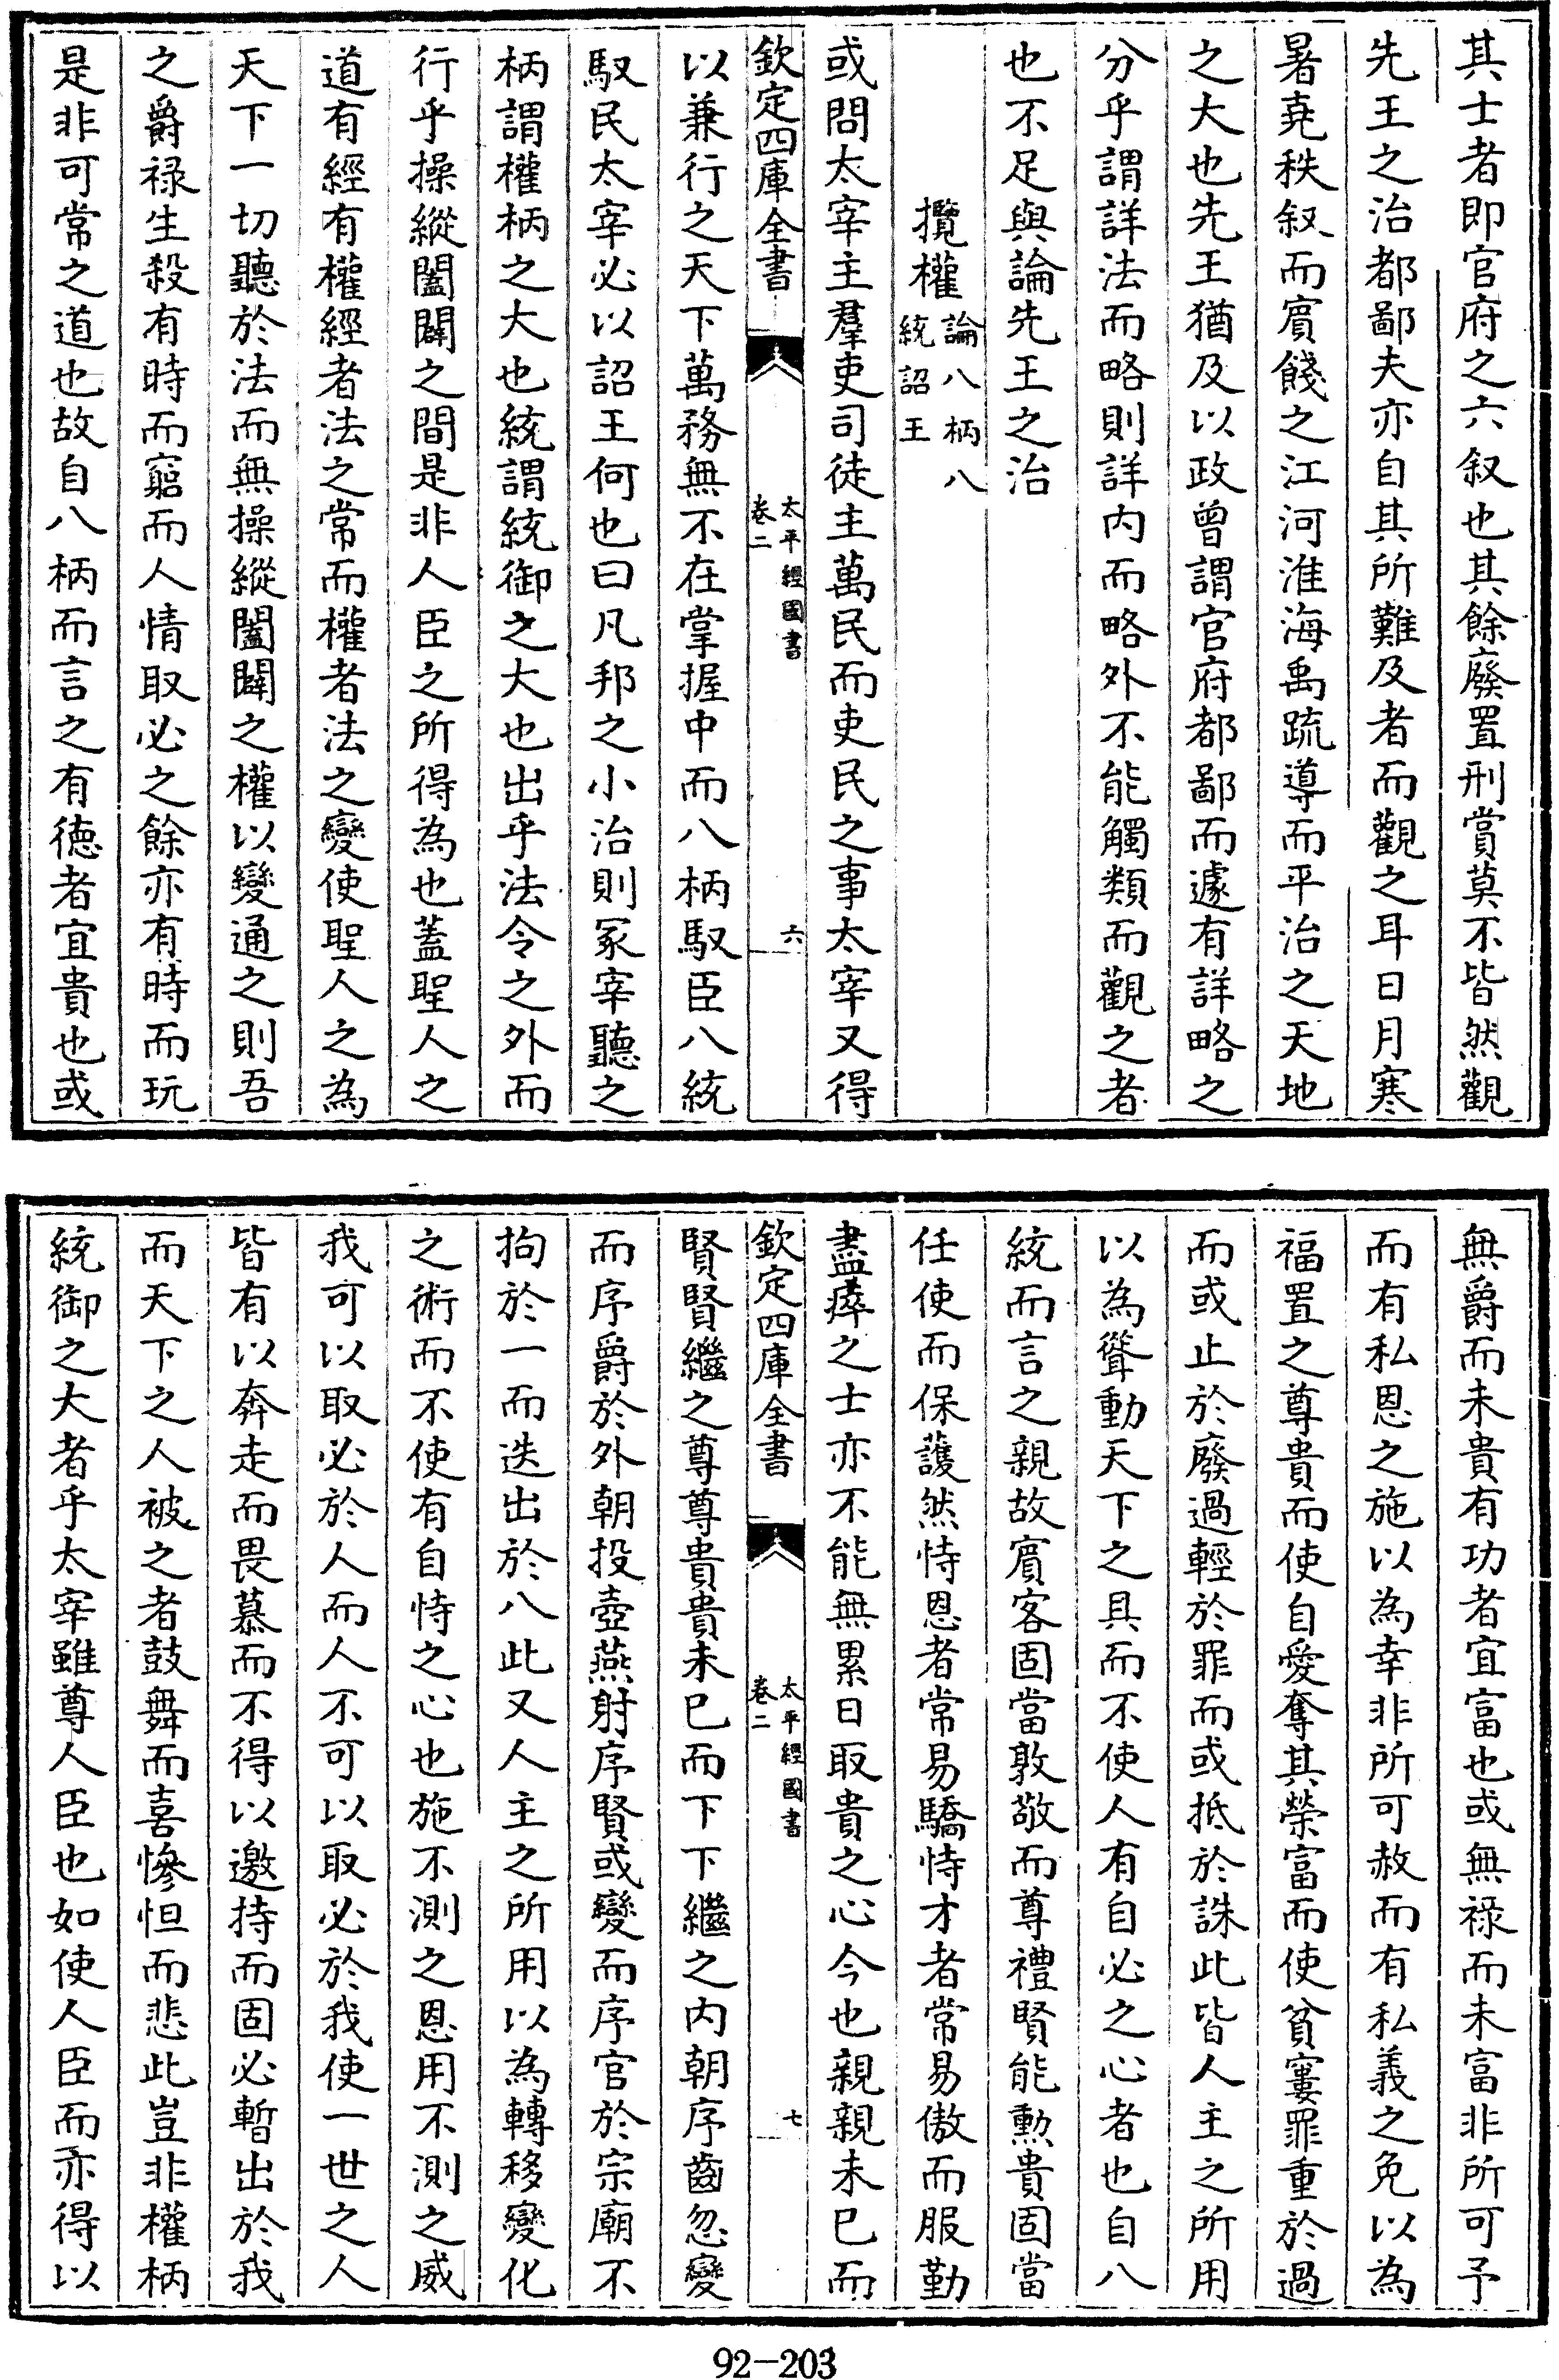 其士者即官府之六叙也其餘廢置刑賞莫不皆然觀
先王之治都鄙夫亦自其所難及者而觀之耳日月寒
暑堯秩叙而賔餞之江河淮海禹疏導而平治之天地
之大也先王猶及以政曾謂官府都鄙而遽有詳略之
分乎謂詳法而略則詳内而略外不能觸類而觀之者
也不足與論先王之治
攬權論八柄八統詔王
或問太宰主羣吏司徒主萬民而吏民之事太宰又得
欽定四庫全書
太平經國書
卷二
六
以兼行之天下萬務無不在掌握中而八柄馭臣八統
馭民太宰必以詔王何也曰凡邦之小治則冢宰聽之
柄謂權柄之大也統謂統御之大也出乎法令之外而
行乎操縱闔闢之間是非人臣之所得為也蓋聖人之
道有經有權經者法之常而權者法之變使聖人之為
天下一切聽於法而無操縱闔闢之權以變通之則吾
之爵禄生殺有時而窮而人情取必之餘亦有時而玩
是非可常之道也故自八柄而言之有徳者宜貴也或
無爵而未貴有功者宜富也或無禄而未富非所可予
而有私恩之施以為幸非所可赦而有私義之免以為
福置之尊貴而使自愛奪其榮富而使貧寠罪重於過
而或止於廢過輕於罪而或抵於誅此皆人主之所用
以為聳動天下之具而不使人有自必之心者也自八
統而言之親故賔客固當敦敬而尊禮賢能勲貴固當
任使而保護然恃恩者常易驕恃才者常易傲而服勤
盡瘁之士亦不能無累日取貴之心今也親親未已而
欽定四庫全書
太平經國書
卷二
七
賢賢繼之尊尊貴貴未已而下下繼之内朝序齒忽變
而序爵於外朝投壺燕射序賢或變而序官於宗廟不
拘於一而迭出於八此又人主之所用以為轉移變化
之術而不使有自恃之心也施不測之恩用不測之威
我可以取必於人而人不可以取必於我使一世之人
皆有以奔走而畏慕而不得以邀持而固必暫出於我
而天下之人被之者鼓舞而喜慘怛而悲此豈非權柄
統御之大者乎太宰雖尊人臣也如使人臣而亦得以
92-203